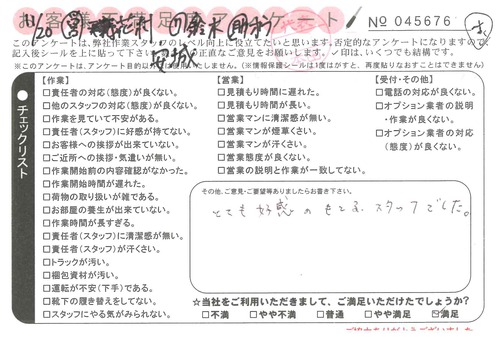 お客様満足度アンケート
№ 045676
1/20 営
鈴木
安城
このアンケートは、弊社作業スタッフのレベル向上に役立てたいと思います。否定的なアンケートになりますので、
記入後シールを上に貼って下さい。正直なご意見をお願いします。✓印は、いくつでも結構です。
※このアンケートは、アンケート目的以外では使用いたしません。(※情報保護シールは1度はがすと、再度貼りなおすことはできません)
チェックリスト
【作業】
□責任者の対応(態度)が良くない。
□他のスタッフの対応(態度)が良くない。
□作業を見ていて不安がある。
□責任者(スタッフ)に好感が持てない。
□お客様への挨拶が出来ていない。
□ご近所への挨拶・気遣いが無い。
□作業開始前の内容確認がなかった。
□作業開始時間が遅れた。
□荷物の取り扱いが雑である。
□お部屋の養生が出来ていない。
□作業時間が長すぎる。
□責任者(スタッフ)に清潔感が無い。
□責任者(スタッフ)が汗くさい。
□トラックが汚い。
□梱包資材が汚い。
□運転が不安(下手)である。
□靴下の履き替えをしてない。
□スタッフにやる気がみられない。
【営業】
□見積もり時間に遅れた。
□見積もり時間が長い。
□営業マンに清潔感が無い。
□営業マンが煙草くさい。
□営業マンが汗くさい。
□営業態度が良くない。
□営業の説明と作業が一致してない。
【受付・その他】
□電話の対応が良くない。
□オプション業者の説明
・作業が良くない。
□オプション業者の対応
(態度)が良くない。
その他、ご意見・ご要望等ありましたらお書き下さい。
とても好感のもてる、スタッフでした。
☆当社をご利用いただきまして、ご満足いただけたでしょうか?
□不満 □やや不満 □普通 □やや満足 ☑満足
ご協力ありがとうございました